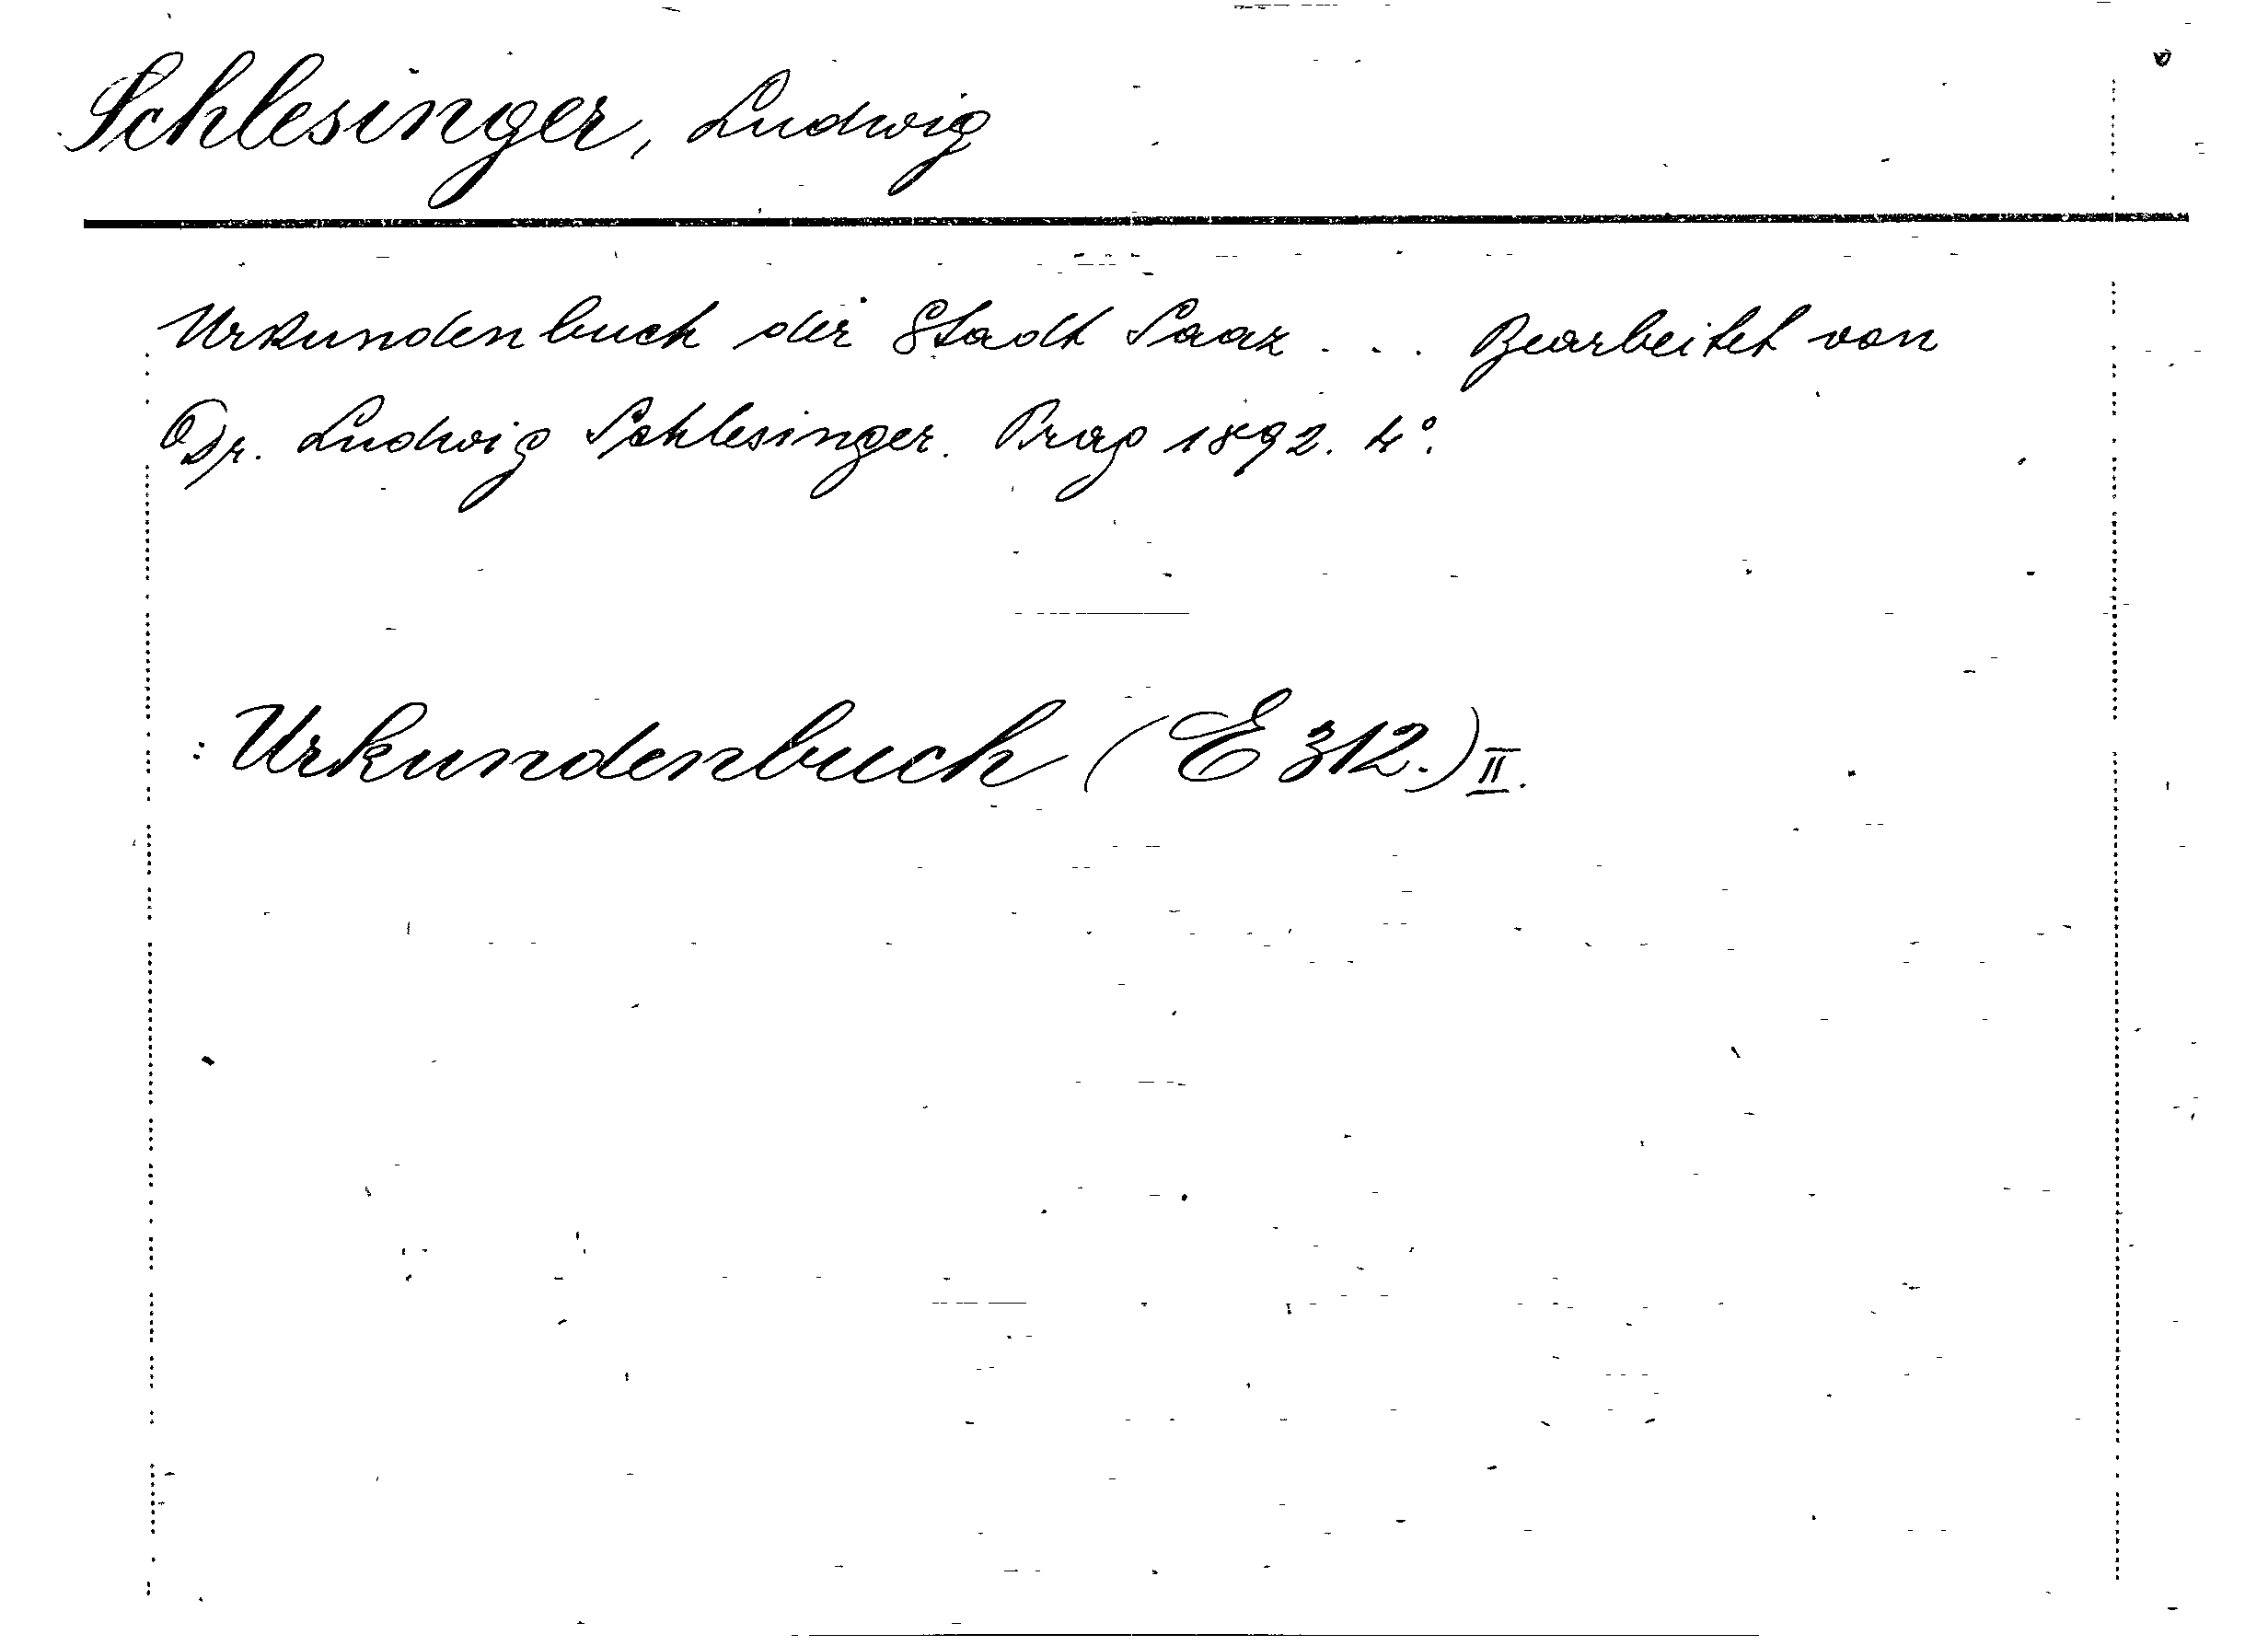 Schlesinger, Ludwig
Urkundenbuch der Stadt Saaz . . . Bearbeitet von
Dr. Ludwig Schlesinger. Prag 1892. 4°.
: Urkundenbuch (E 312.) II.